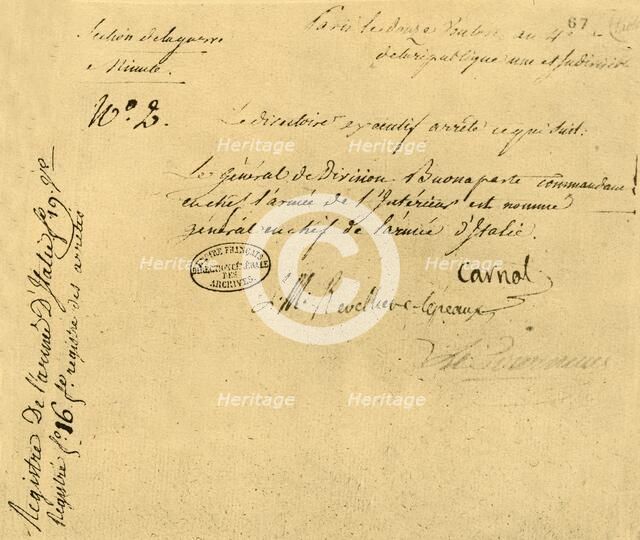 Section de la guerre
Minute.
Paris le douze Ventose an 4e
67
de la république une et Indivisible
No. 2.
Le directoire executif arrête ce qui suit:
Le général de Division Buonaparte commandant
en chef l'armée de l'Intérieur est nommé
général en chef de l'armée d'Italie.
EMPIRE FRANÇAIS
DIRECTION GÉNÉRALE
DES
ARCHIVES.
Carnot
L. M. Revelliere-lépeaux
Registre De l'armée D'Italie fo. 19. 
Registré fo. 16 registre des arretés
Heritage
Heritage
Heritage
Heritage
Heritage
Heritage
Heritage
Heritage
©